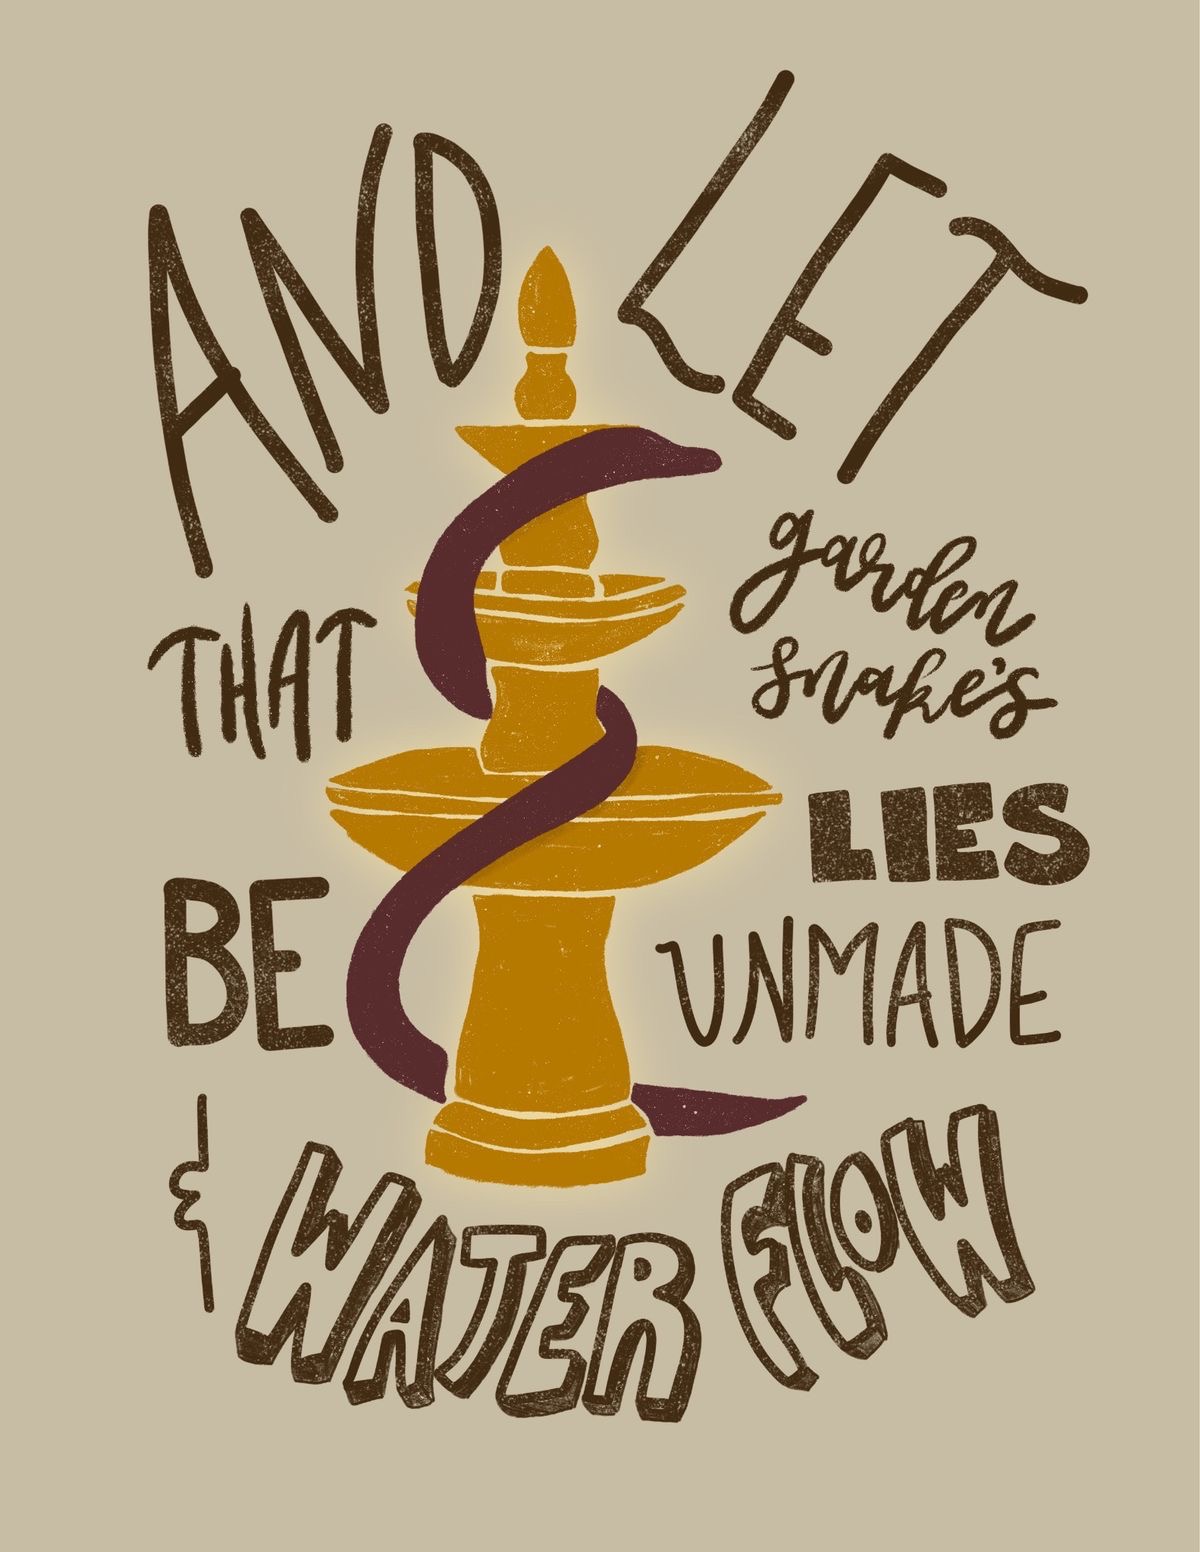 AND LET
THAT garden
snake's
LIES
BE UNMADE
& WATER FLOW